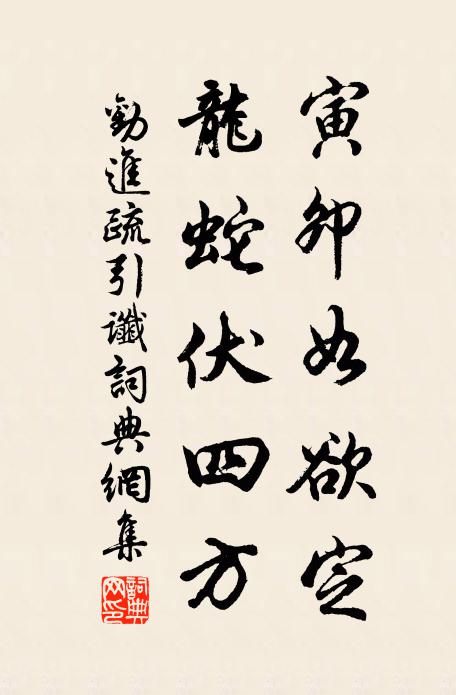 寅卯如欲定
龍蛇伏四方
勸進疏引讖詞典網集
詞典網印